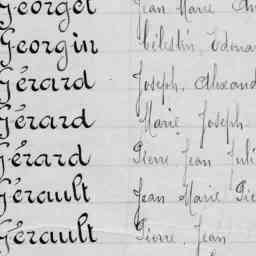 Georget Jean Marie
Georgin Célestin, Edoua
Gérard Joseph, Alexand
Gérard Marie, Joseph
Gérard Pierre Jean Juli
Gérault Jean Marie Pie
Gérault Pierre, Jean